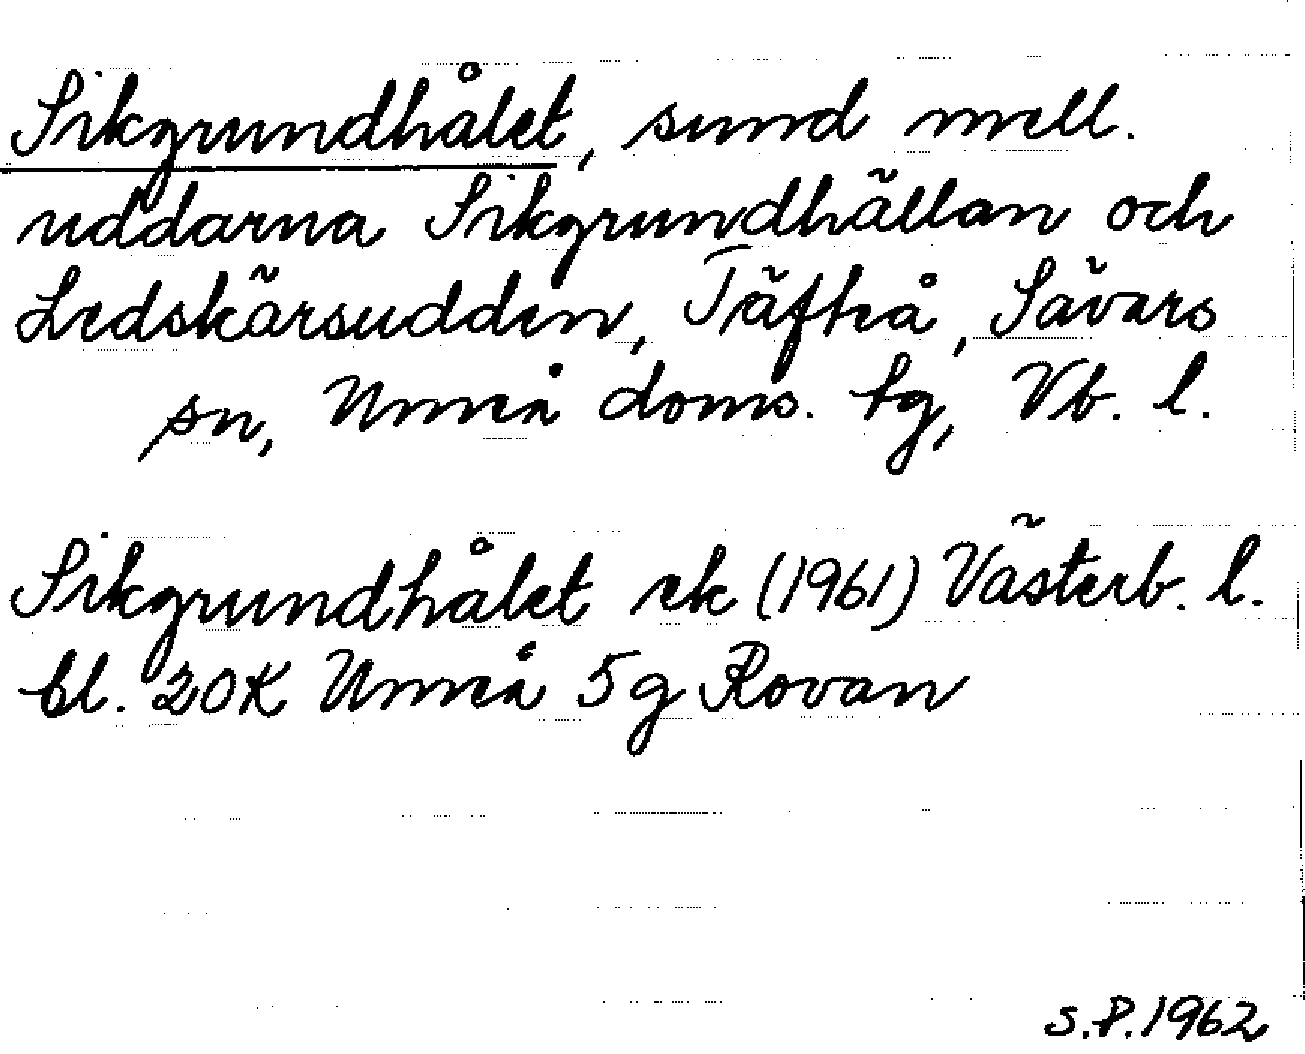 Sikgrundhålet, sund mell.
uddarna Sikgrundhällan och
Ledskärsudden, Täfteå, Sävars
sn, Umeå doms. tg, Vb. l.
Sikgrundhålet ek (1961) Västerb. l.
bl. 20K Umeå 5g Rovan
S.P. 1962